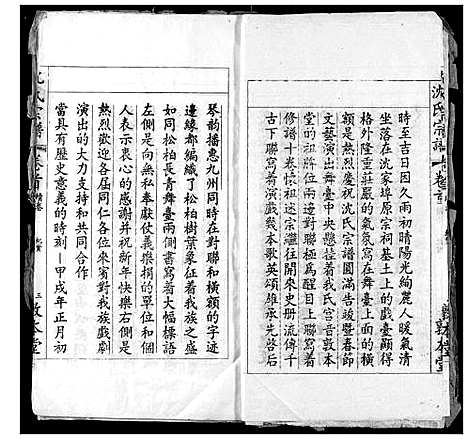 沈氏宗譜 卷首
時至吉日因久雨初晴陽光絢麗人暖氣清
坐落在沈家埠原宗祠基土上的戲臺顯得
格外隆重莊嚴的氣氛寫在舞臺上面一條
祝頌是熱烈慶祝沈氏宗譜圓滿告竣暨春節
文藝演出舞臺中央懸挂着我氏宮音敦本
堂的祖牌位兩邊對聯極爲醒目上聯寫着
修譜十卷懷祖述宗繼往開來史册流傳千
古下聯寫着演戲幾本歌英頌雄承先啓后
敦本堂
琴韵播忠九州同時在對聯和橫額的字迹
邊緣都編織了松柏樹葉象征着我族之盛
如同松柏長青舞臺兩側書寫着大幅標語
左側是向無私奉獻仗義樂捐的單位和個
人表示衷心的感謝并祝新年快樂右側是
熱烈歡迎各屆同仁各位來賓對我族戲劇
演出的大力支持和共同合作
當具有歷史意義的時刻—甲戌年正月初
氏宗譜 卷首
三 敦本堂